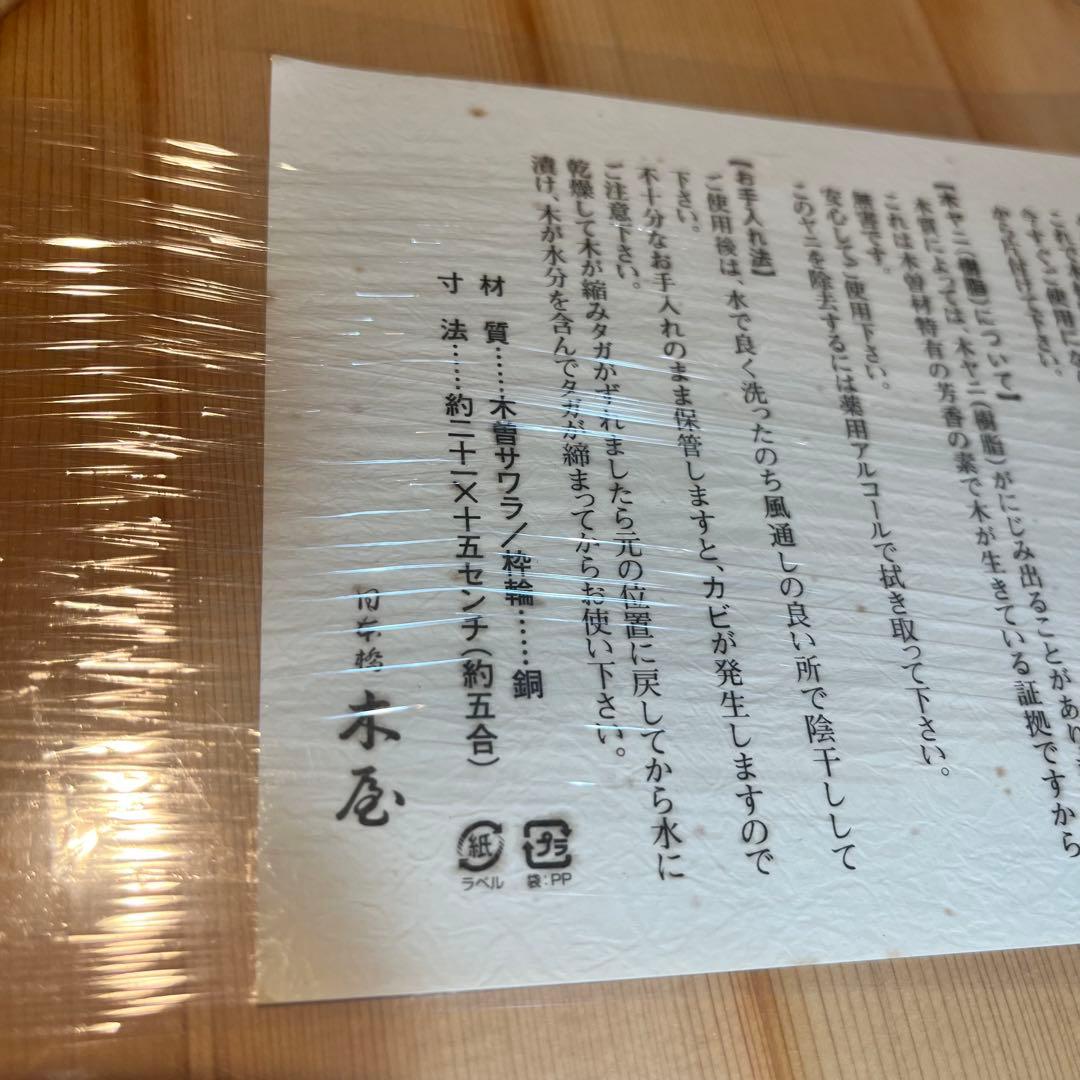 今すぐご使用にな
から片付けて下さい。
【木ヤニ(樹脂)について】
木質によっては、木ヤニ(樹脂)がにじみ出ることがあり
これは木曽材特有の芳香の素で木が生きている証拠ですから
無害です。
安心してご使用下さい。
このヤニを除去するには薬用アルコールで拭き取って下さい。
【お手入れ法】
ご使用後は、水で良く洗ったのち風通しの良い所で陰干しして
下さい。
不十分なお手入れのまま保管しますと、カビが発生しますので
ご注意下さい。
乾燥して木が縮みタガがずれましたら元の位置に戻してから水に
漬け、木が水分を含んでタガが締まってからお使い下さい。
材 質……木曽サワラ/枠輪……銅
寸 法……約二十一×十五センチ(約五合)
日本橋 木屋
紙
ラベル
プラ
袋:PP